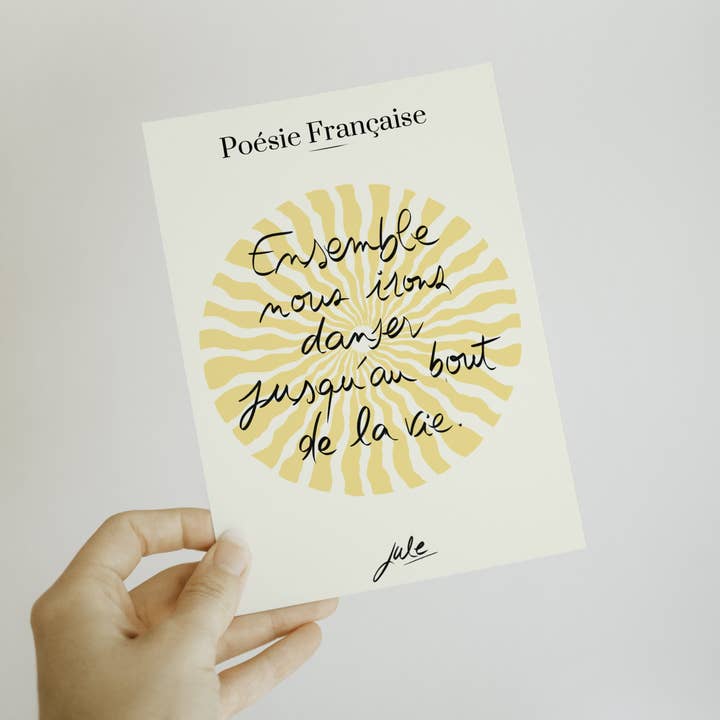 Poésie Française
Ensemble
nous irons
danser
jusqu'au bout
de la vie.
jule